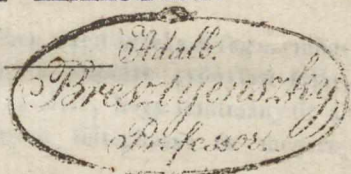 Adalb.
Bresztyenszky
Professor.